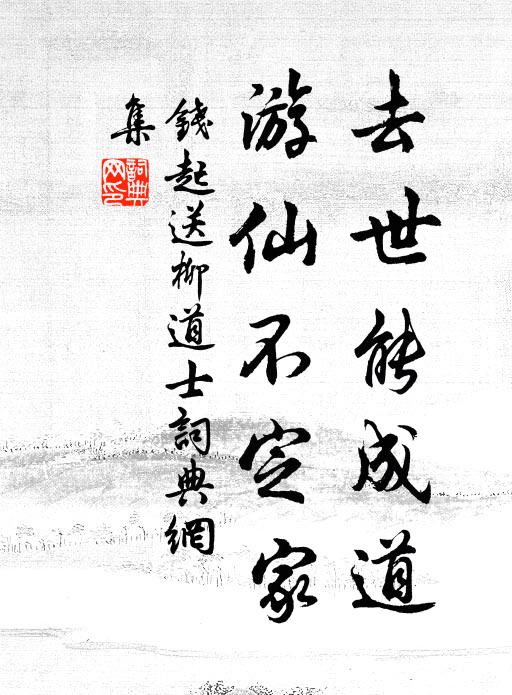 去世能成道
游仙不定家
錢起送柳道士詞典網
集
詞典
网印